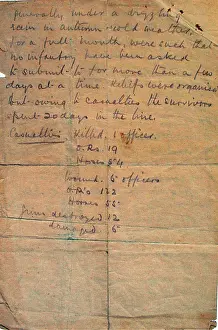 generally under a drizzling
rain in autumn cold weather.
For a full month, were such that
no infantry have been asked
to submit to for more than a few
days at a time. Reliefs were organised
but owing to casualties the survivors
spent 20 days in the line.
Casualties Killed, officer.
O.Rs 19
Horses 54
Wound. 5 officers
O.R's 122
Horses 55
Guns destroyed 12
damaged 6